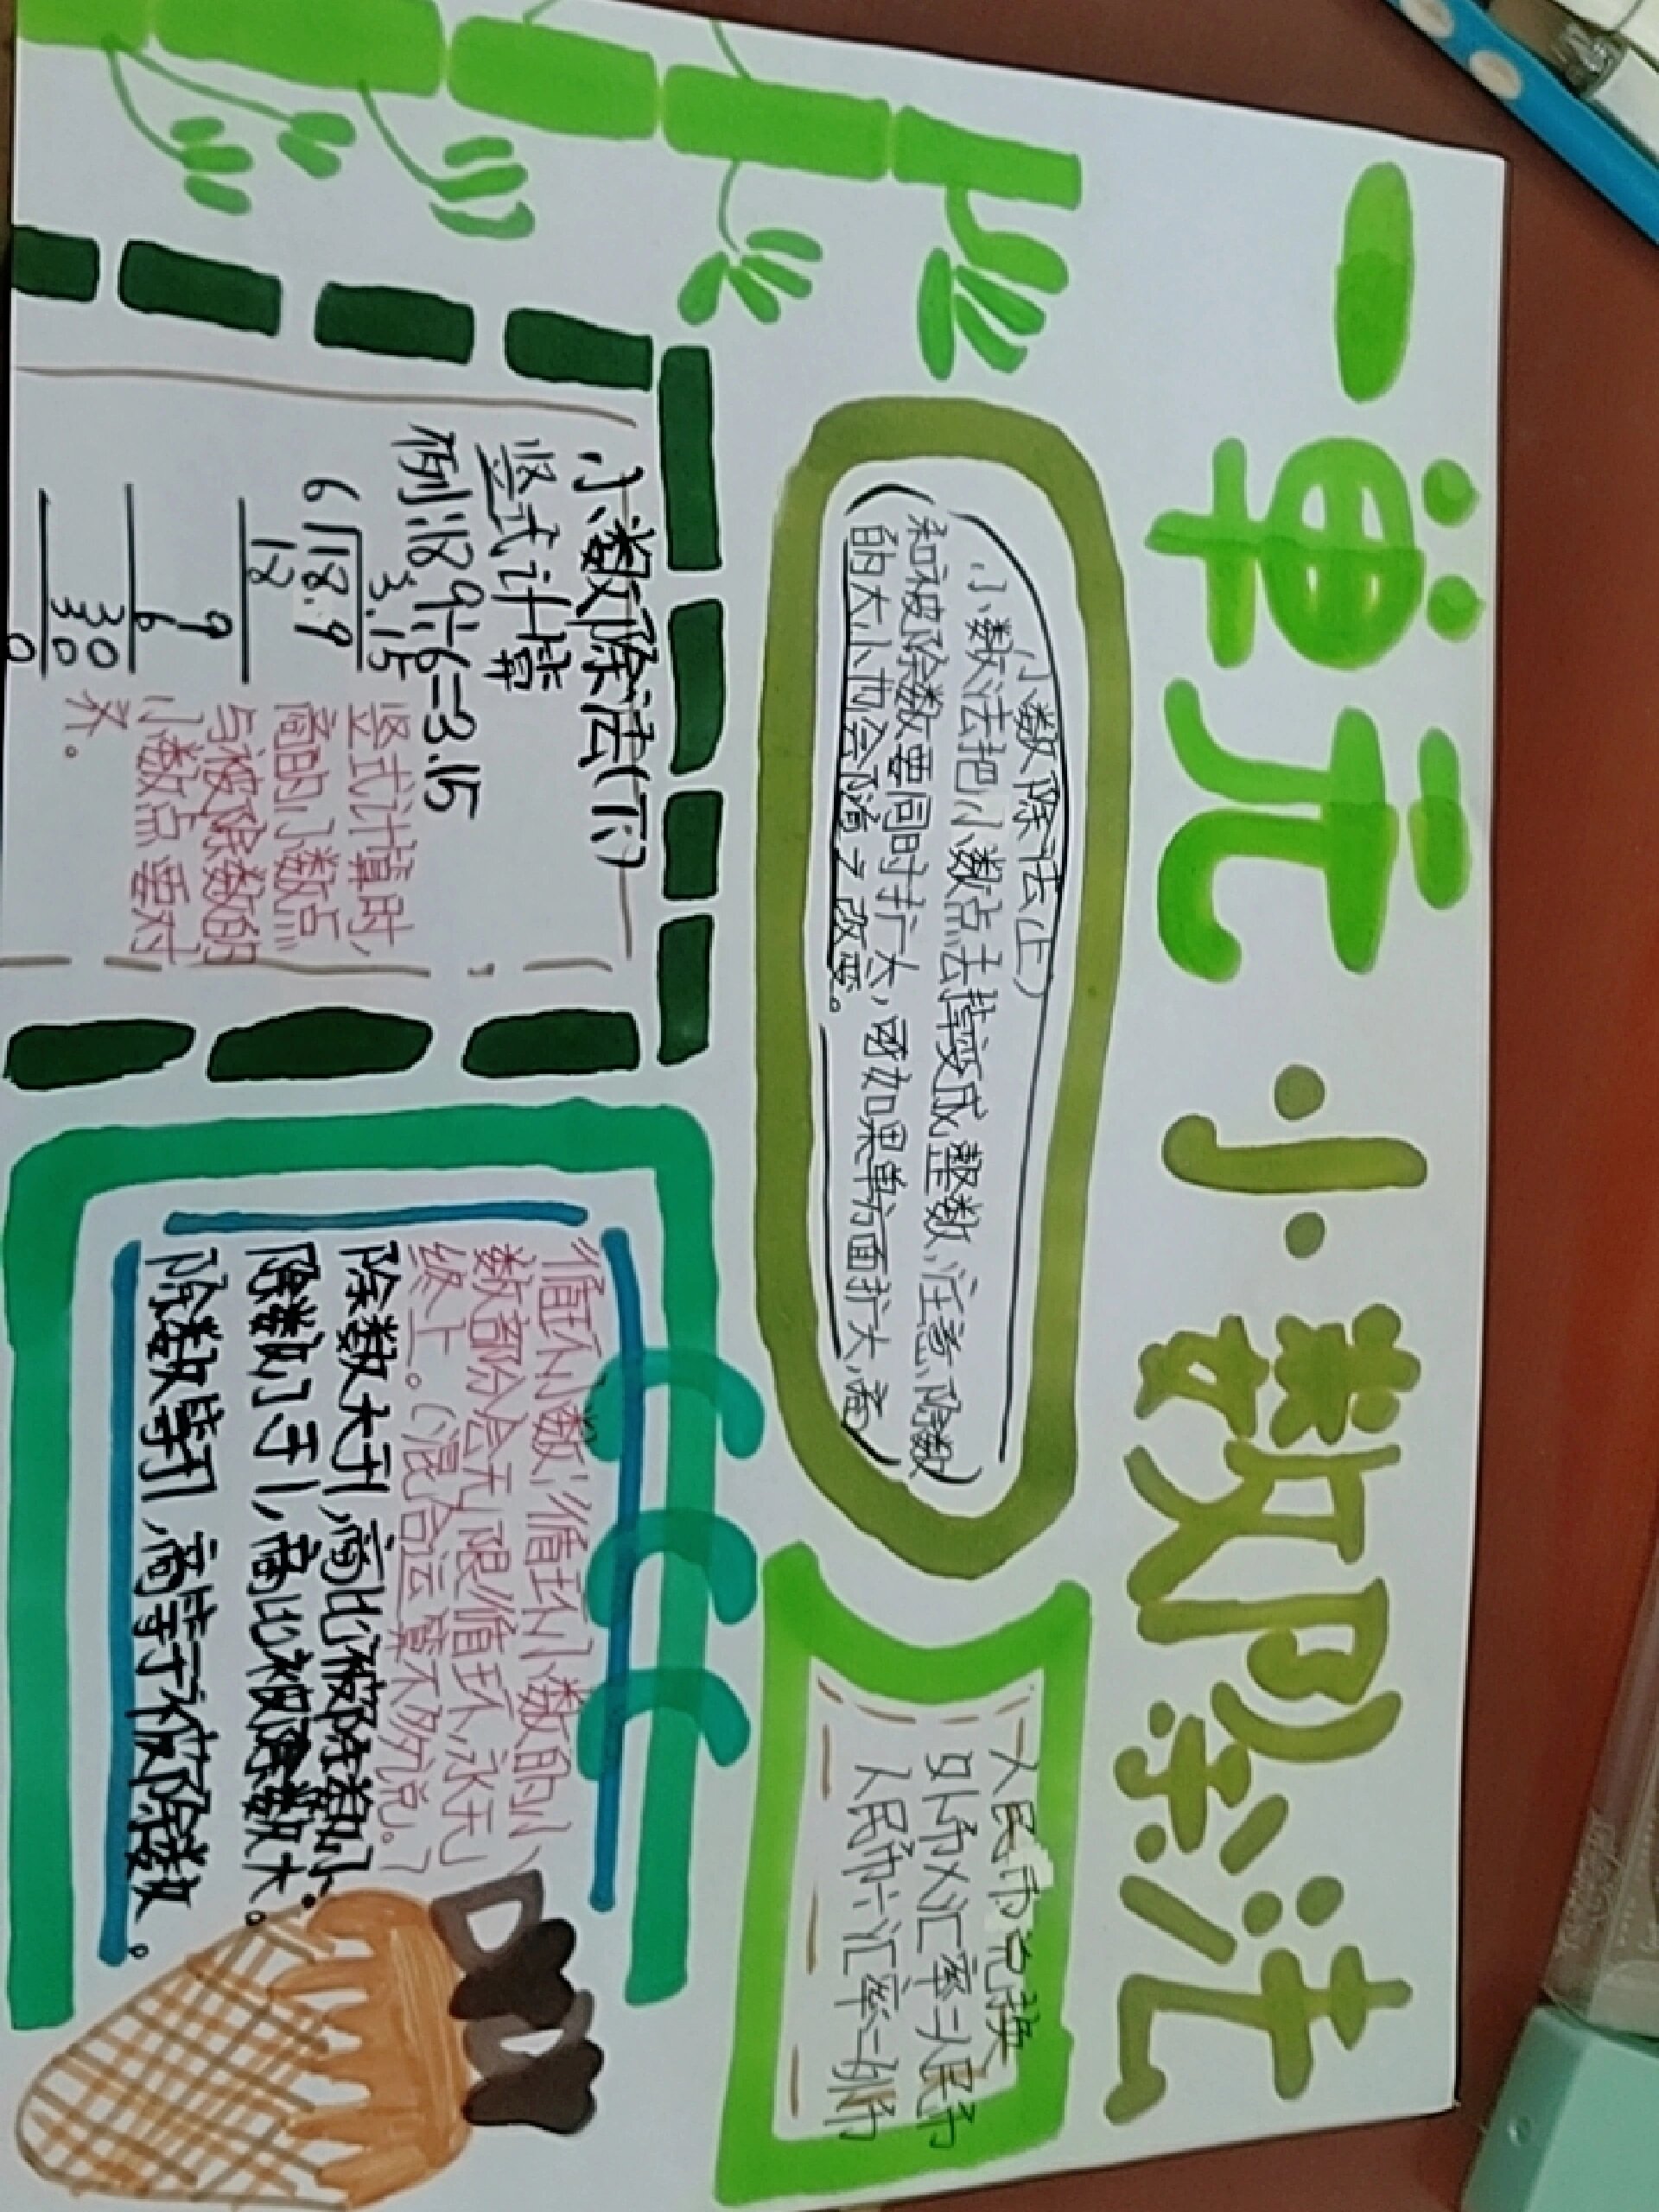 一单元 小数除法
小数除法(上)
小数法把小数点去掉变成整数,注意,除数
和被除数要同时扩大,因如果单方面扩大,商
的大小也会随之改变。
人民币兑换
外币×汇率=人民币
人民币÷汇率=外币
小数除法(下)
竖式计算
例:18.9÷6=3.15
3.15
6 18.9
18
9
6
30
30
0
竖式计算时,
商的小数点
与被除数的
小数点要对
齐。
循环小数:循环小数的小
数部分会无限循环,永无
终止。(混合运算不必说。)
除数大于1,商比被除数小。
除数小于1,商比被除数大。
除数等于1,商等于被除数。